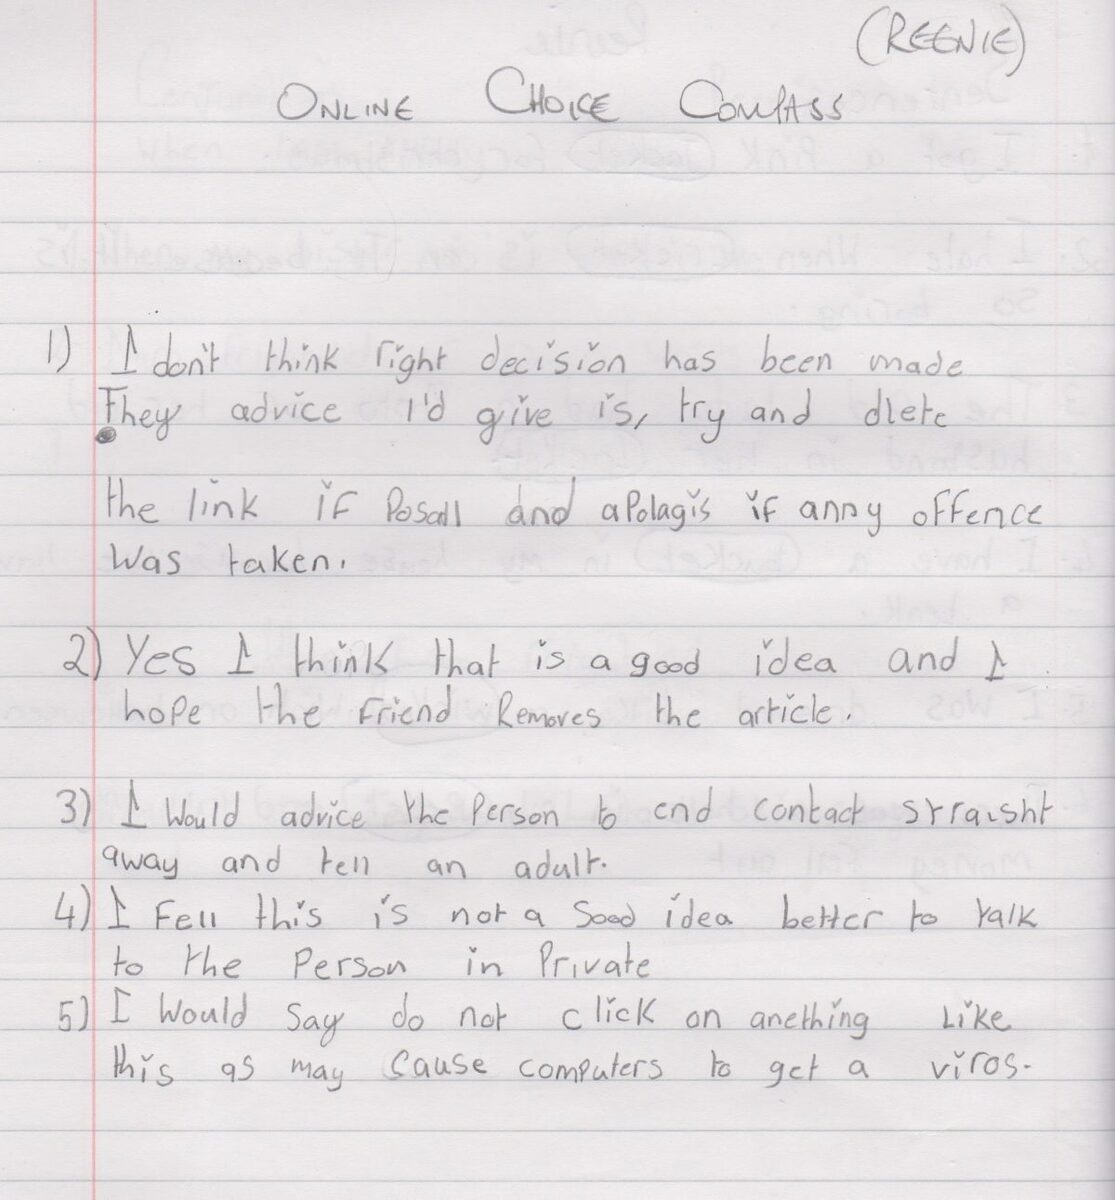 (REENIE)
ONLINE CHOICE COMPASS
1) I don't think right decision has been made
They advice I'd give is, try and dlete
the link if Posall and apolagis if anny offence
was taken.
2) Yes I think that is a good idea and I
hope the friend Removes the article.
3) I would advice the person to end contact straight
away and tell an adult.
4) I Fell this is not a good idea better to talk
to the Person in Private
5) I would say do not click on anething like
this as may cause computers to get a viros.